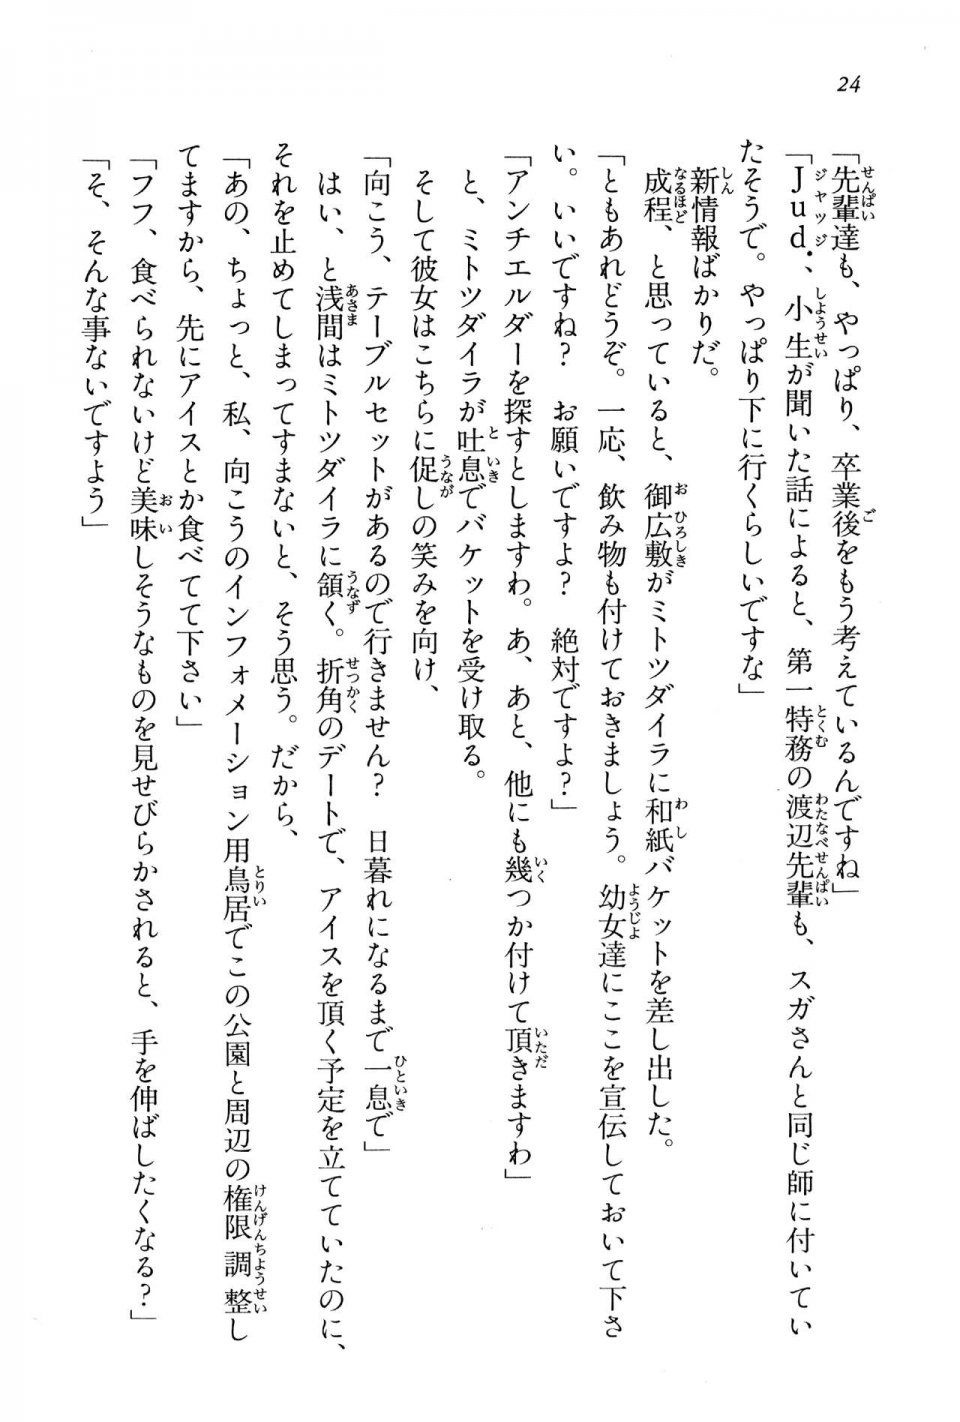 24
「先輩達も、やっぱり、卒業後をもう考えているんですね」
「Jud.、小生が聞いた話によると、第一特務の渡辺先輩も、スガさんと同じ師に付いてい
たそうで。やっぱり下に行くらしいですな」
新情報ばかりだ。
成程、と思っていると、御広敷がミトツダイラに和紙バケットを差し出した。
「ともあれどうぞ。一応、飲み物も付けておきましょう。幼女達にここを宣伝しておいて下さ
い。いいですね？　お願いですよ？　絶対ですよ？」
「アンチエルダーを探すとしますわ。あ、あと、他にも幾つか付けて頂きますわ」
と、ミトツダイラが吐息でバケットを受け取る。
そして彼女はこちらに促しの笑みを向け、
「向こう、テーブルセットがあるので行きません？　日暮れになるまで一息で」
はい、と浅間はミトツダイラに頷く。折角のデートで、アイスを頂く予定を立てていたのに、
それを止めてしまってすまないと、そう思う。だから、
「あの、ちょっと、私、向こうのインフォメーション用鳥居でこの公園と周辺の権限調整し
てますから、先にアイスとか食べてて下さい」
「フフ、食べられないけど美味しそうなものを見せびらかされると、手を伸ばしたくなる？」
「そ、そんな事ないですよう」